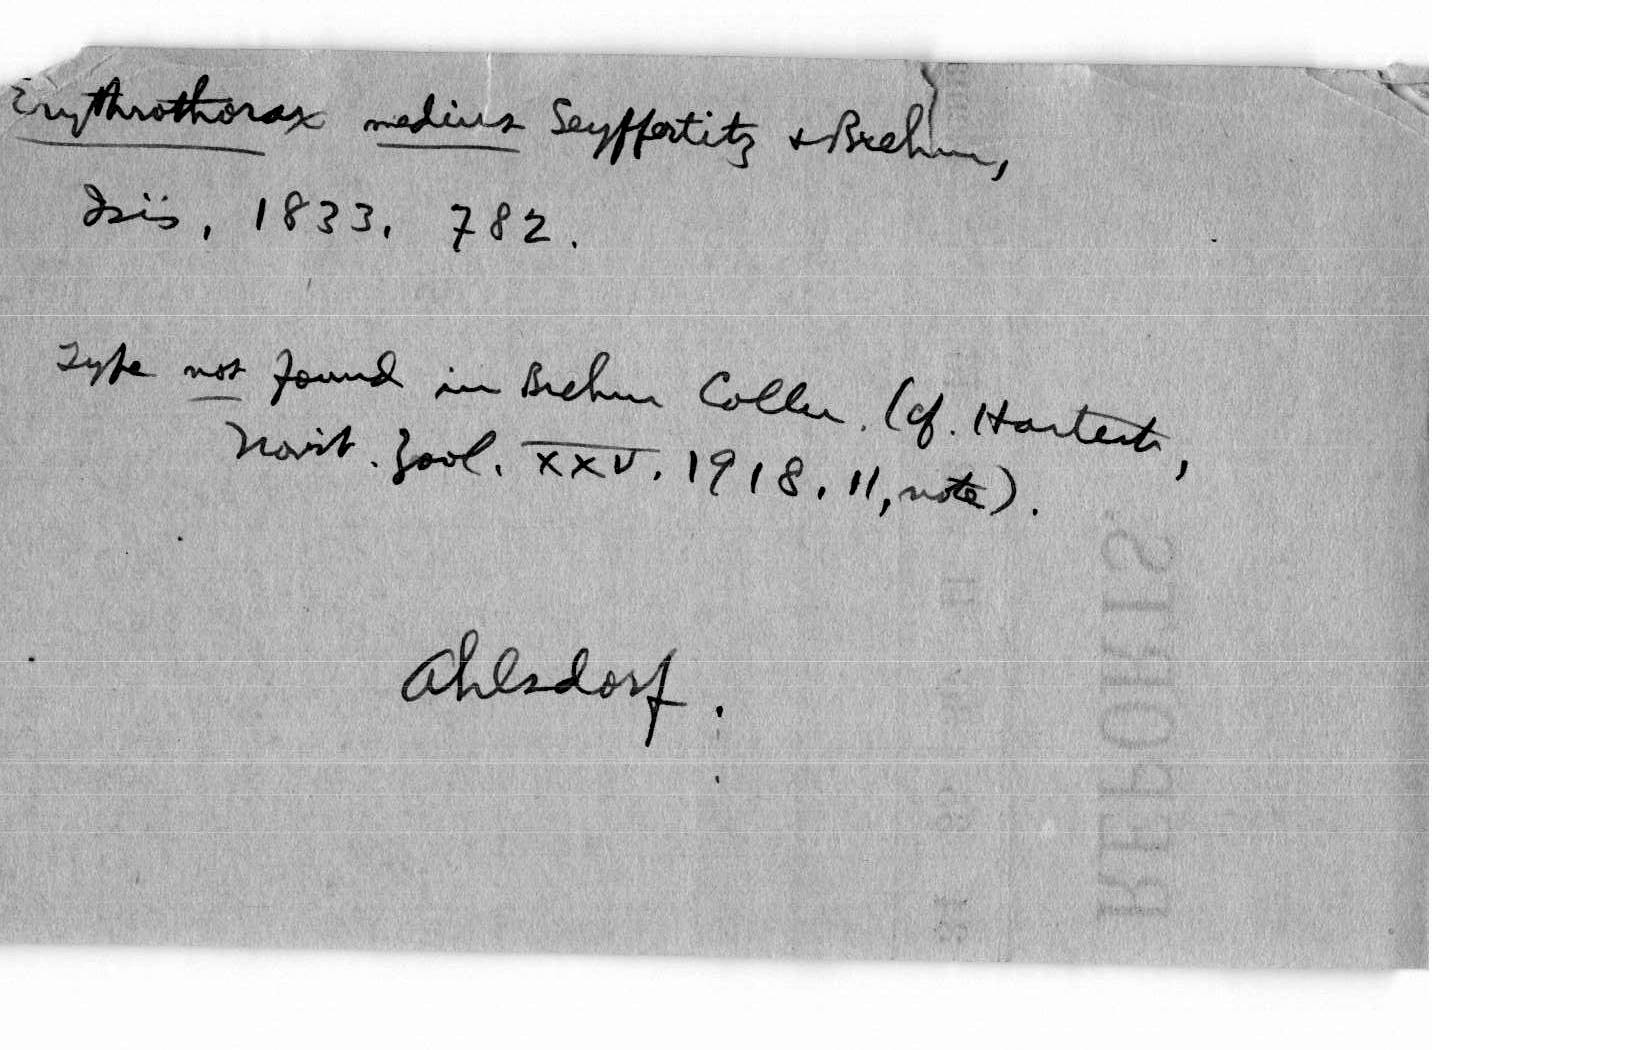 Erythrothorax medius Seyffertitz & Brehm,
Isis, 1833, 782.
Type not found in Brehm Colln. (cf. Hartert,
Novit. Zool. XXV. 1918. 11, note).
Ahlsdorf.
REPORTS